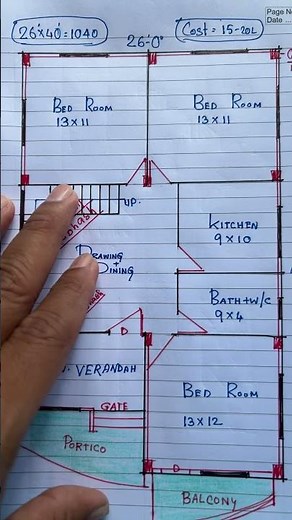 Page No
Date ...
26'x40'=1040
Cost = 15-20L
26'-0"
BED ROOM
13 x 11
BED ROOM
13 x 11
UP.
KITCHEN
9 x 10
DRAWING
+
DINING
BATH+W/C
9 x 4
D
VERANDAH
BED ROOM
13 x 12
GATE
PORTICO
D
BALCONY